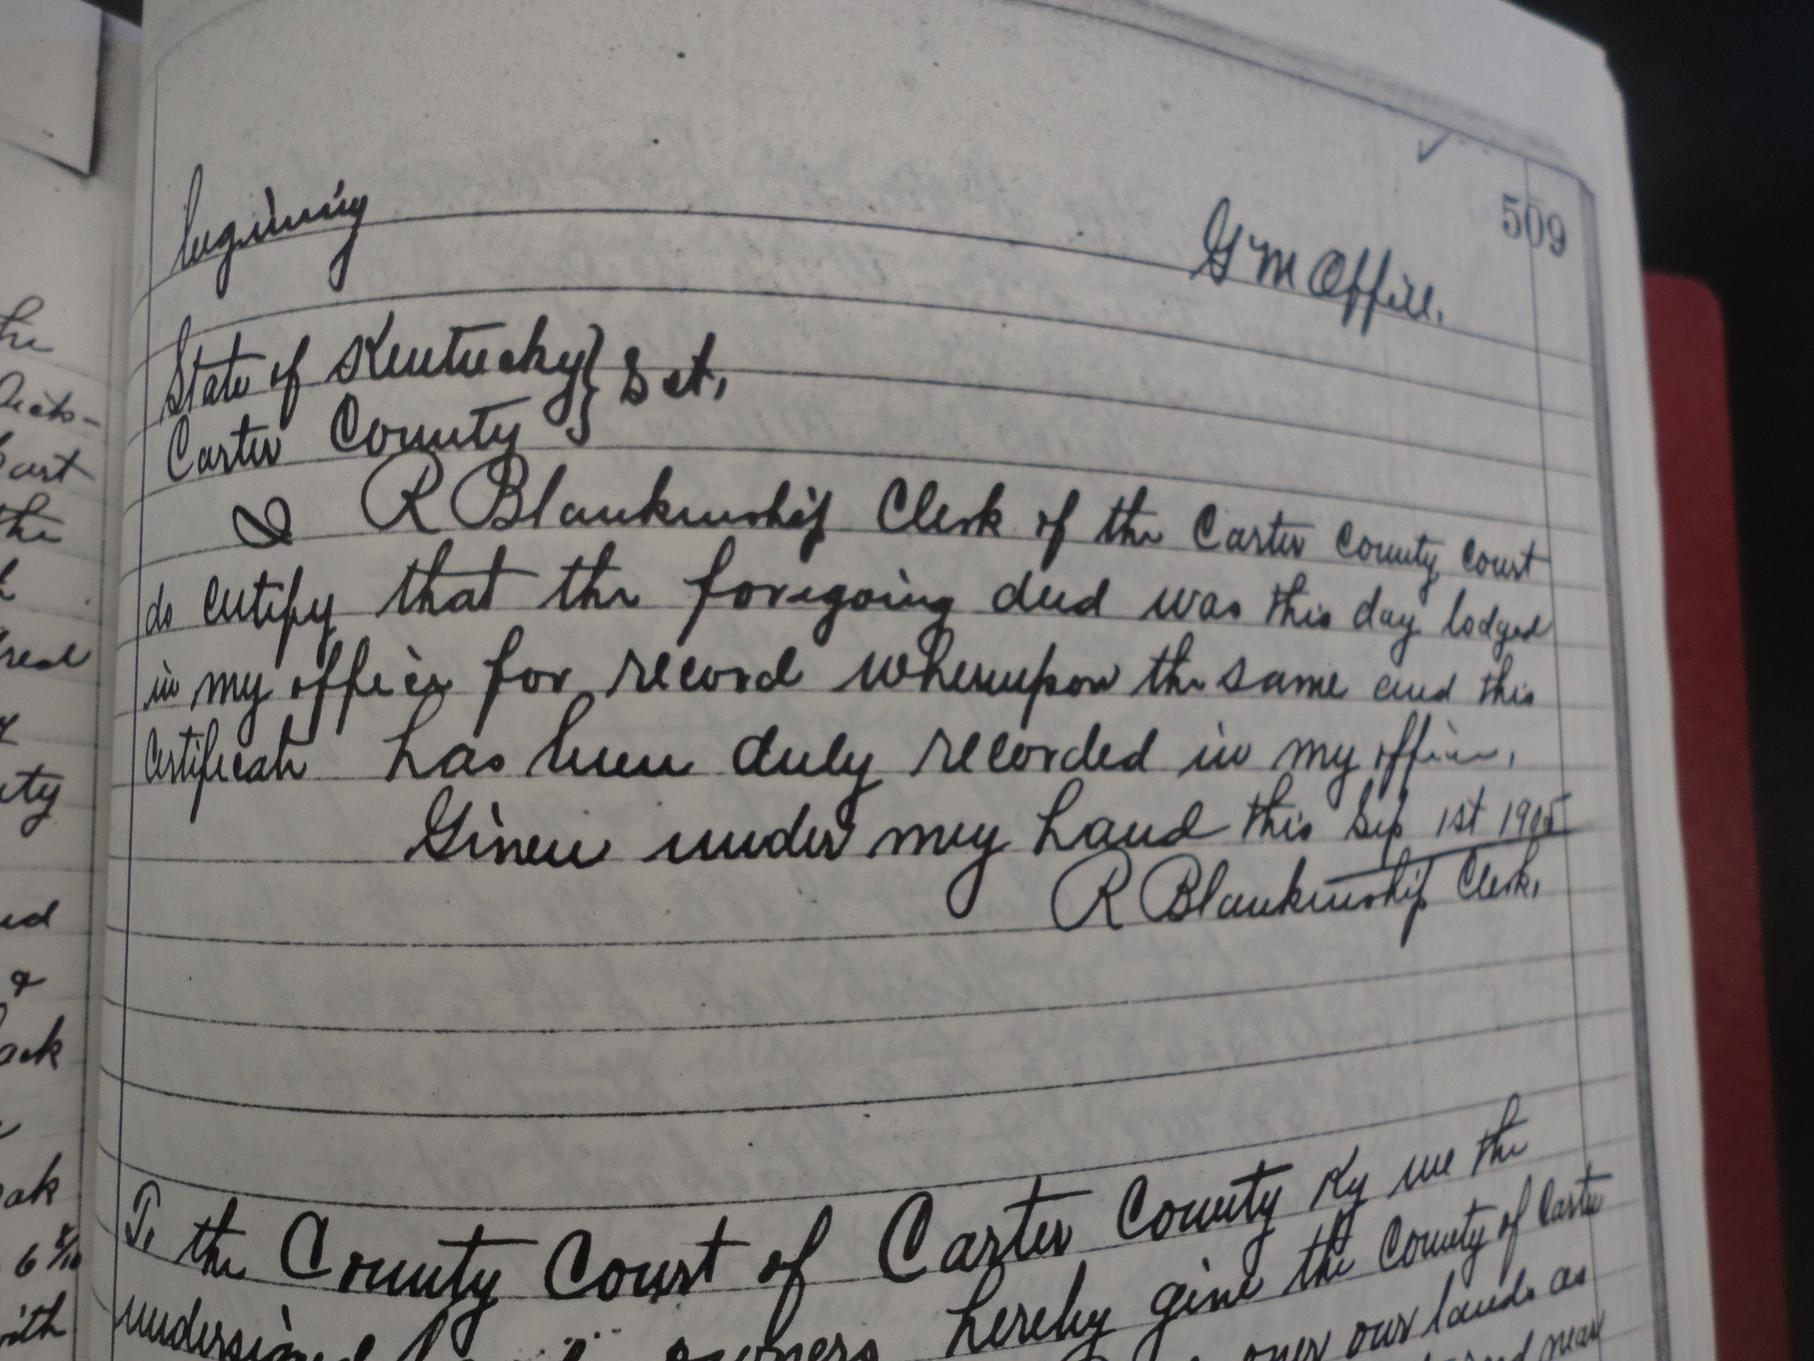 509
beginning
G M Offill.
State of Kentucky } Sct,
Carter County }
I R Blankenship Clerk of the Carter County Court
do certify that the foregoing deed was this day lodged
in my office for record whereupon the same and this
Certificate has been duly recorded in my office,
Given under my hand this Sep 1st 1905
R Blankenship Clerk,
To the County Court of Carter County Ky we the
undersigned owners hereby give the County of Carter
over our lands as
near
the
part
the
real
ity
&
ack
ak
6 8/10
with